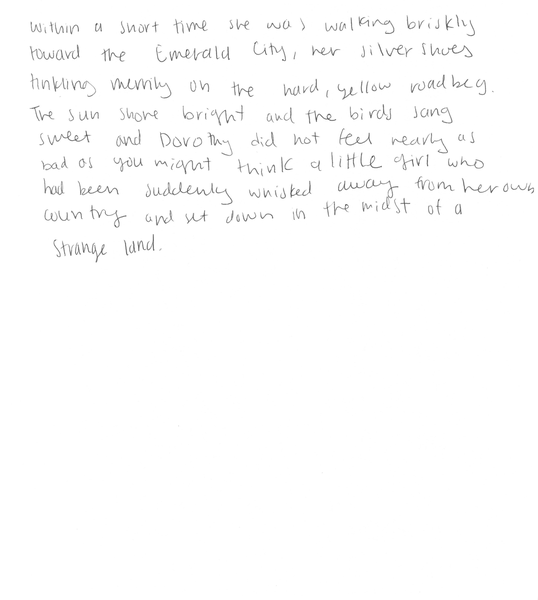 within a short time she was walking briskly
toward the Emerald City, her silver shoes
tinkling merrily on the hard, yellow roadbeg.
The sun shone bright and the birds sang
sweet and Dorothy did not feel nearly as
bad as you might think a little girl who
had been suddenly whisked away from her own
country and set down in the midst of a
strange land.